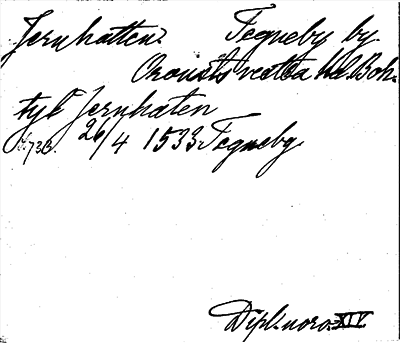 Jernhatten. Tegneby by.
Orousts vestra hd Boh.
tyl Jernhaten
26/4 1533 Tegneby.
Dipl. norv. XIV